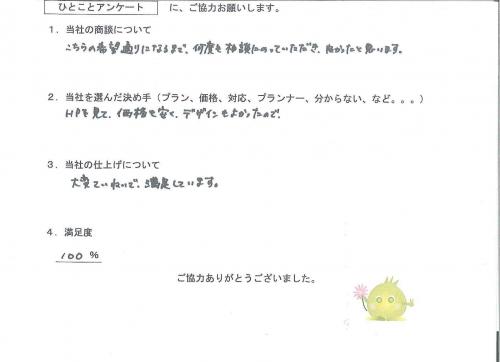 ひとことアンケート に、ご協力お願いします。
1．当社の商談について
こちらの希望通りになるまで、何度も相談にのっていただき、良かったと思います。
2．当社を選んだ決め手（プラン、価格、対応、プランナー、分からない、など。。。）
HPを見て、価格も安く、デザインもよかったので。
3．当社の仕上げについて
大変ていねいで、満足しています。
4．満足度
100 %
ご協力ありがとうございました。